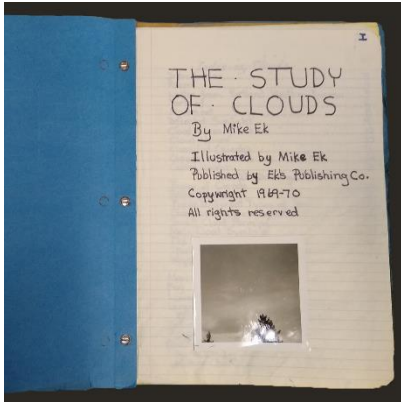 I
THE · STUDY
OF · CLOUDS
By Mike Ek
Illustrated by Mike Ek
Published by Ek's Publishing Co.
Copywright 1969-70
All rights reserved